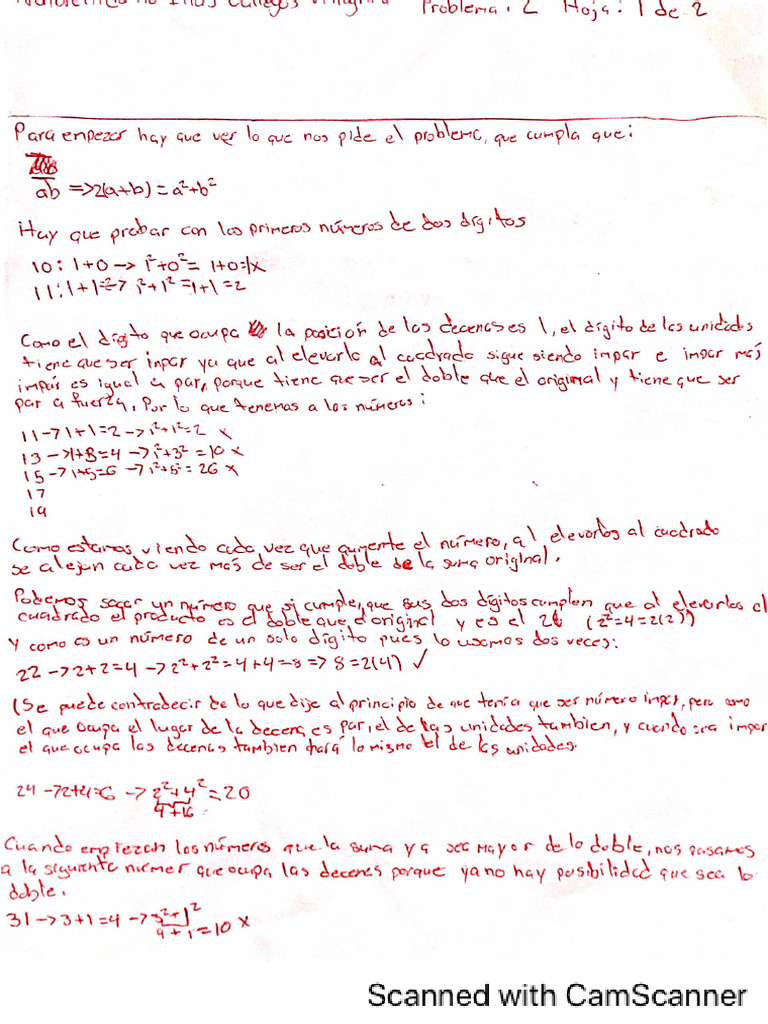 Problema: 2 Hoja: 1 de 2
Para empezar hay que ver lo que nos pide el problema, que cumpla que:
ab => 2(a+b) = a²+b²
Hay que probar con los primeros números de dos dígitos
10: 1+0 -> 1²+0² = 1+0=1x
11: 1+1=2-> 1²+1²=1+1=2
Como el dígito que ocupa la posición de las decenas es 1, el dígito de las unidades
tiene que ser inpar ya que al elevarlo al cuadrado sigue siendo impar e impar más
impar es igual a par, porque tiene que ser el doble que el original y tiene que ser
par a fuerza, Por lo que tenemos a los números:
11->1+1=2->1²+1²=2 x
13->1+3=4->1²+3²=10 x
15->1+5=6->1²+5²=26 x
17
19
Como estamos viendo cada vez que aumente el número, al elevarlos al cuadrado
se alejan cada vez más de ser el doble de la suma original.
Podemos sacar un número que si cumple, que sus dos dígitos cumplen que al elevarlos al
cuadrado el producto es el doble que el original y es el 2 (2²=4=2(2))
Y como es un número de un solo dígito pues lo usamos dos veces:
22->2+2=4->2²+2²=4+4=8=>8=2(4) ✓
(Se puede contradecir de lo que dije al principio de que tenía que ser número impar, pero como
el que ocupa el lugar de la decena es par, el de las unidades tambien, y cuando sea impar
el que ocupa las decenas tambien hará lo mismo el de las unidades.
24->2+4=6->2²+4²=20
4+16
Cuando empiezan los números que la suma ya sea mayor de lo doble, nos pasamos
a la siguiente numer que ocupa las decenas porque ya no hay posibilidad que sea lo
doble.
31->3+1=4->3²+1²
9+1=10 x
Scanned with CamScanner